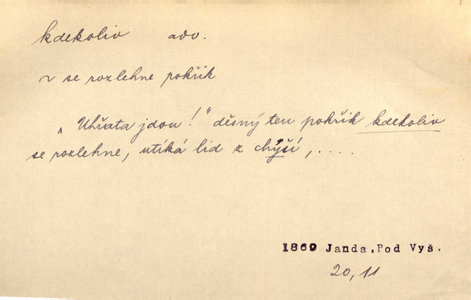 kdekoliv adv.
~ se rozlehne pokřik
„Uhřata jdou!" děsný ten pokřik kdekoliv
se rozlehne, utíká lid z chýší, ....
1869 Janda, Pod Vyš.
20, 11